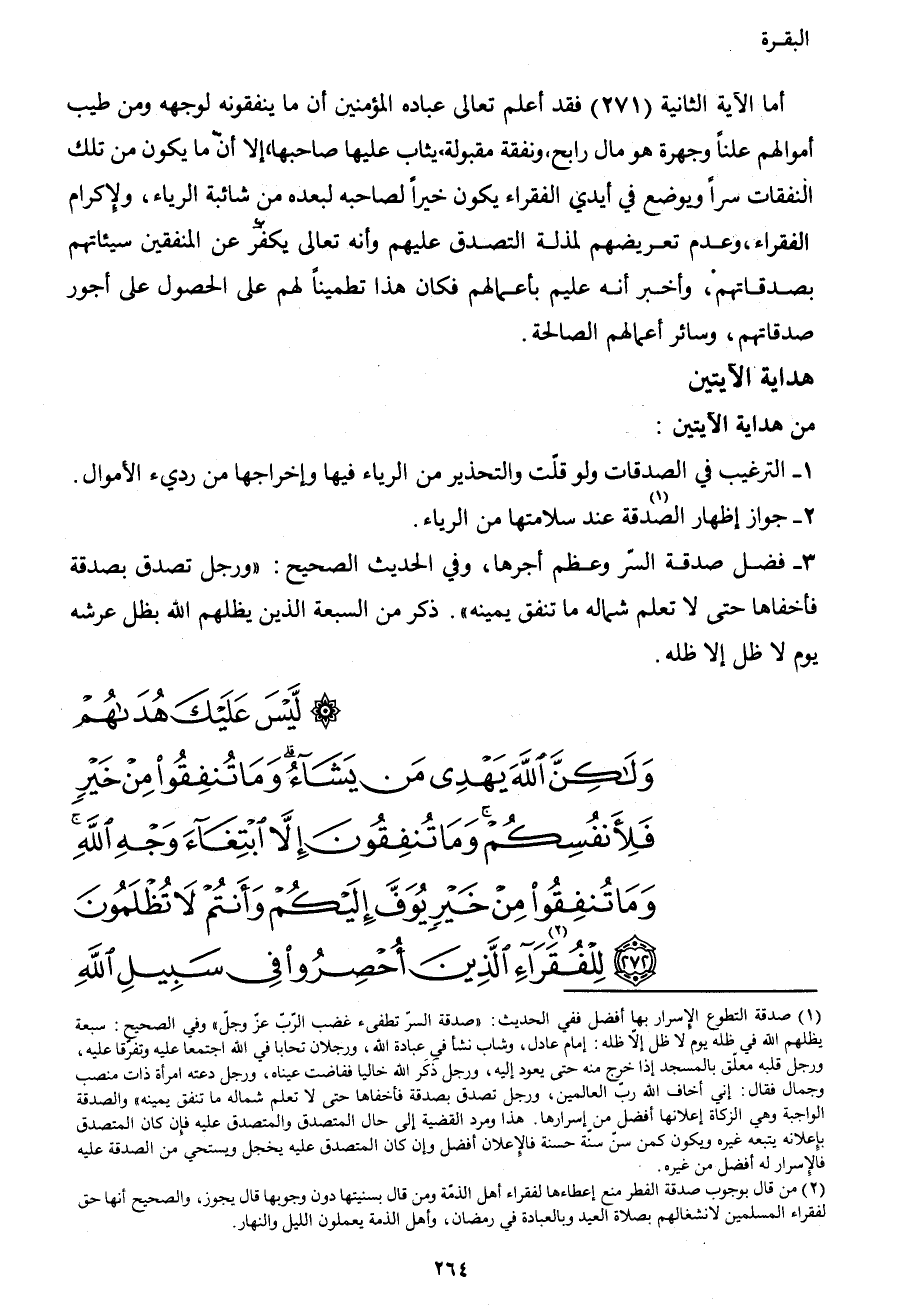 البقـرة
أما الآية الثانية (٢٧١) فقد أعلم تعالى عباده المؤمنين أن ما ينفقونه لوجهه ومن طيب
أموالهم علناً وجهرة هو مال رابح،ونفقة مقبولة،يثاب عليها صاحبها،إلا أنّ ما يكون من تلك
النفقات سراً ويوضع في أيدي الفقراء يكون خيراً لصاحبه لبعده من شائبة الرياء، ولإكرام
الفقراء،وعـدم تعـريضهم لمذلـة التصـدق عليهم وأنه تعالى يكفّر عن المنفقين سيئاتهم
بصـدقـاتهم، وأخـبر أنـه عليم بأعـمالهم فكان هذا تطميناً لهم على الحصول على أجور
صدقاتهم، وسائر أعمالهم الصالحة.
هداية الآيتين
من هداية الآيتين :
١ـ الترغيب في الصدقات ولو قلّت والتحذير من الرياء فيها وإخراجها من رديء الأموال.
٢ـ جواز إظهار الصّدقة(١) عند سلامتها من الرياء.
٣ـ فضـل صدقـة السرّ وعـظم أجرها، وفي الحديث الصحيح: «ورجل تصدق بصدقة
فأخفاها حتى لا تعلم شماله ما تنفق يمينه». ذكر من السبعة الذين يظلهم الله بظل عرشه
يوم لا ظل إلا ظله.
۞ لَّيْسَ عَلَيْكَ هُدَىٰهُمْ
وَلَٰكِنَّ ٱللَّهَ يَهْدِى مَن يَشَآءُۗ وَمَا تُنفِقُوا۟ مِنْ خَيْرٍ
فَلِأَنفُسِكُمْۚ وَمَا تُنفِقُونَ إِلَّا ٱبْتِغَآءَ وَجْهِ ٱللَّهِۚ
وَمَا تُنفِقُوا۟ مِنْ خَيْرٍ يُوَفَّ إِلَيْكُمْ وَأَنتُمْ لَا تُظْلَمُونَ
﴿٢٧٢﴾ لِلْفُقَرَآءِ(٢) ٱلَّذِينَ أُحْصِرُوا۟ فِى سَبِيلِ ٱللَّهِ
(١) صدقة التطوع الإسرار بها أفضل ففي الحديث: «صدقة السرّ تطفىء غضب الرّبّ عزّ وجلّ» وفي الصحيح: سبعة
يظلهم الله في ظله يوم لا ظل إلّا ظله: إمام عادل، وشاب نشأ في عبادة الله، ورجلان تحابا في الله اجتمعا عليه وتفرّقا عليه،
ورجل قلبه معلّق بالمسجد إذا خرج منه حتى يعود إليه، ورجل ذكر الله خاليا ففاضت عيناه، ورجل دعته امرأة ذات منصب
وجمال فقال: إني أخاف الله ربّ العالمين، ورجل تصدق بصدقة فأخفاها حتى لا تعلم شماله ما تنفق يمينه» والصدقة
الواجبة وهي الزكاة إعلانها أفضل من إسرارها. هذا ومرد القضية إلى حال المتصدق والمتصدق عليه فإن كان المتصدق
بإعلانه يتبعه غيره ويكون كمن سنّ سنّة حسنة فالإعلان أفضل وإن كان المتصدق عليه يخجل ويستحي من الصدقة عليه
فالإسرار له أفضل من غيره.
(٢) من قال بوجوب صدقة الفطر منع إعطاءها لفقراء أهل الذمّة ومن قال بسنيتها دون وجوبها قال يجوز، والصحيح أنها حق
لفقراء المسلمين لانشغالهم بصلاة العيد وبالعبادة في رمضان، وأهل الذمة يعملون الليل والنهار.
٢٦٤